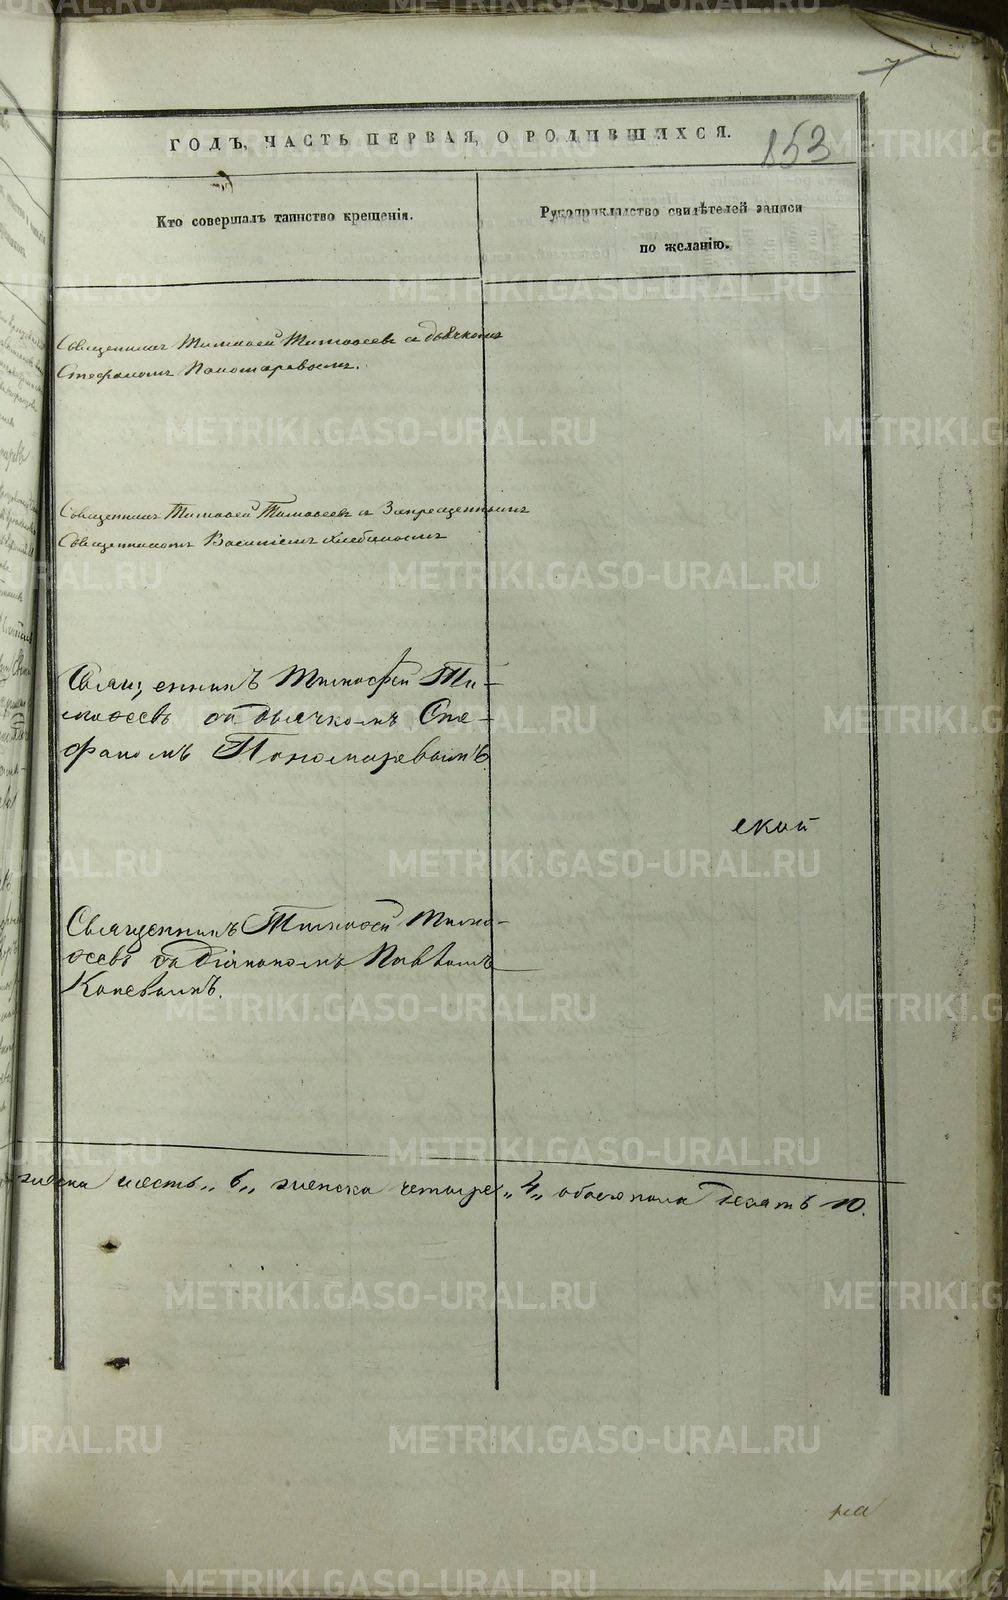 7
ГОДЪ, ЧАСТЬ ПЕРВАЯ, О РОДИВШИХСЯ.
153
Кто совершалъ таинство крещенія.
Рукоприкладство свидѣтелей записи
по желанію.
Священникъ Тимофей Тимофеевъ съ дьячкомъ
Стефаномъ Пономаревымъ.
Священникъ Тимофей Тимофеевъ съ Запрещеннымъ
Священникомъ Василіемъ Хлебинымъ
Священникъ Тимофей Ти-
мофеевъ съ дьячкомъ Сте-
фаномъ Пономаревымъ.
ской
Священникъ Тимофей Тимо-
феевъ съ діакономъ Павломъ
Каневымъ.
шесть „6„ женска четыре „4„ обоего пола десять 10.
METRIKI.GASO-URAL.RU